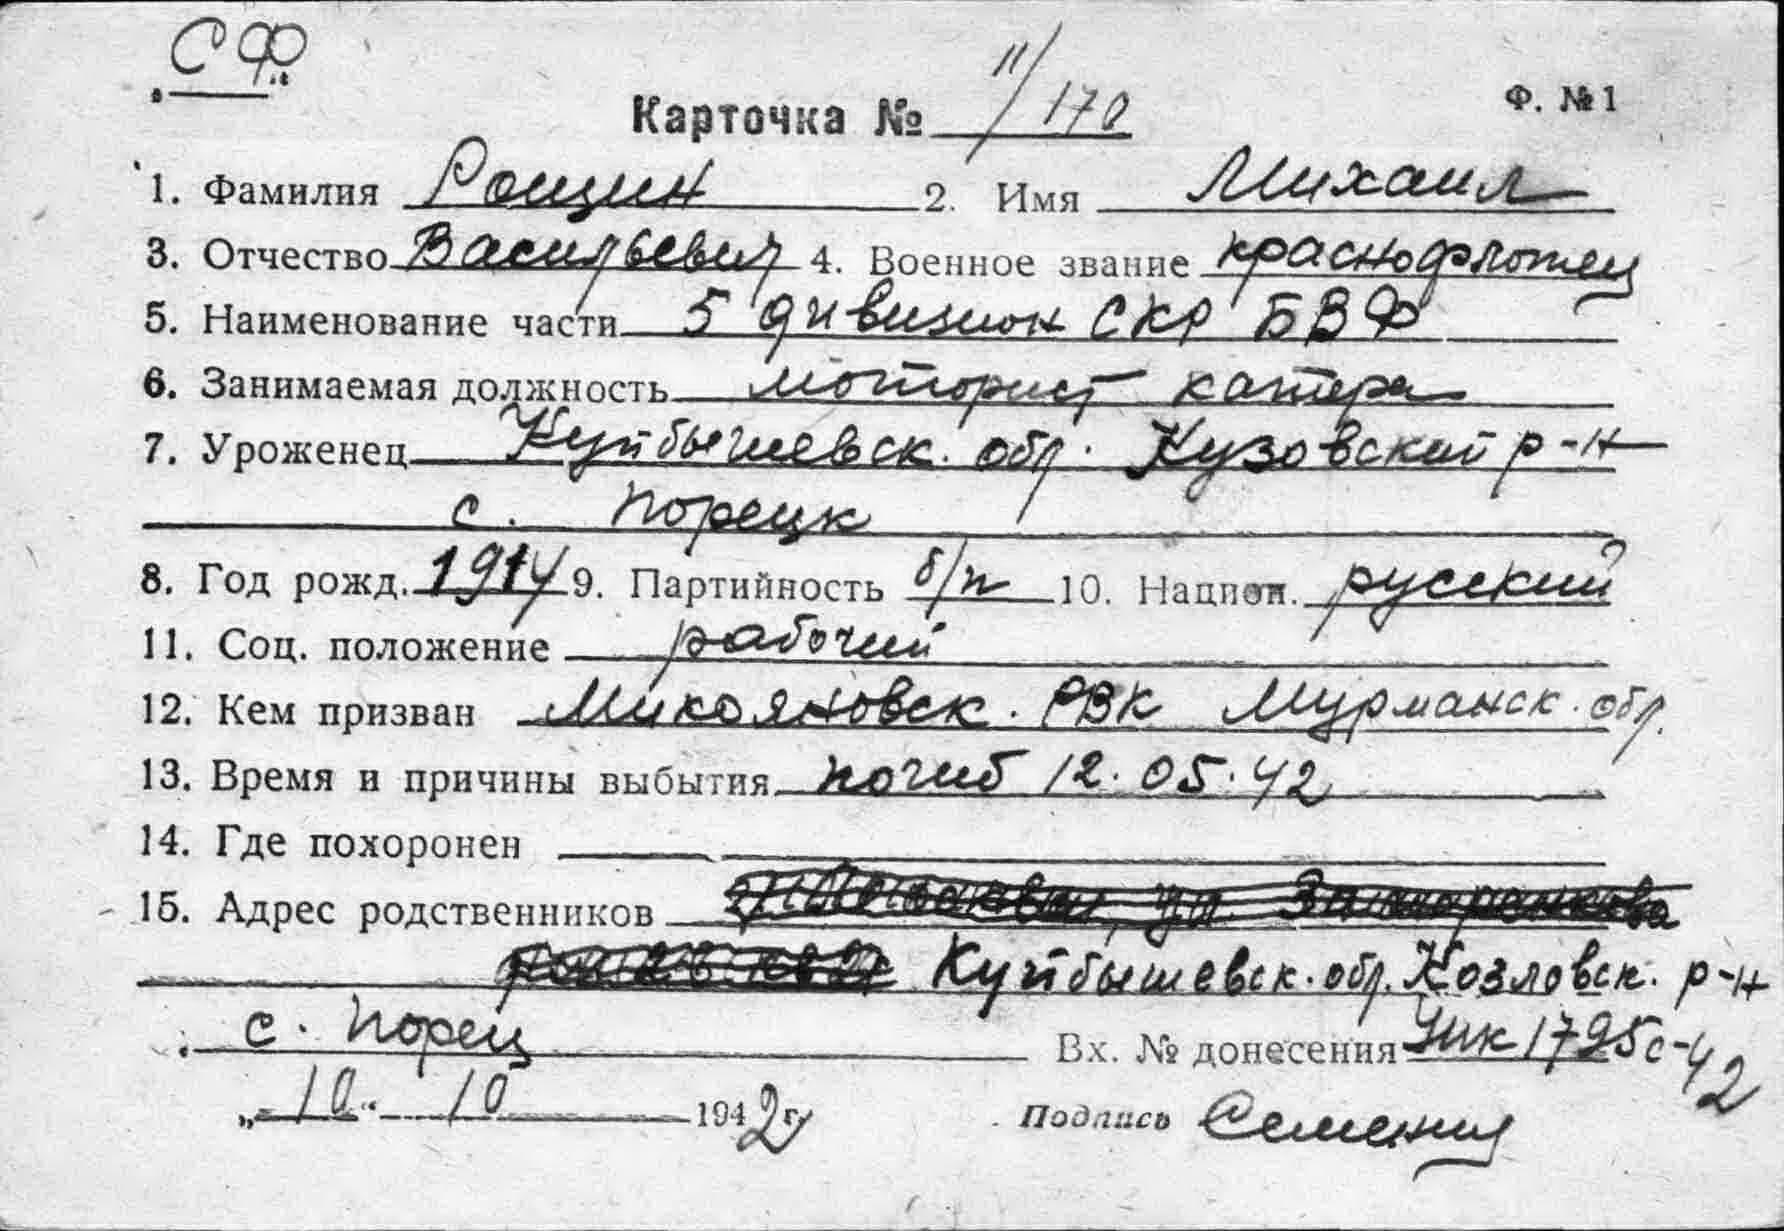 „СФ“
Карточка № 11/170 Ф. № 1
1. Фамилия Рощин 2. Имя Михаил
3. Отчество Васильевич 4. Военное звание краснофлотец
5. Наименование части 5 дивизион СКР БВФ
6. Занимаемая должность моторист катера
7. Уроженец Куйбышевск. обл. Кузовский р-н
с. Порецк
8. Год рожд. 1914 9. Партийность б/п 10. Национ. русский
11. Соц. положение рабочий
12. Кем призван Микояновск. РВК Мурманск. обл.
13. Время и причины выбытия погиб 12.05.42
14. Где похоронен
15. Адрес родственников
Куйбышевск. обл. Козловск. р-н
с. Порец Вх. № донесения 1795с-42
„10“ 10 1942 г. Подпись